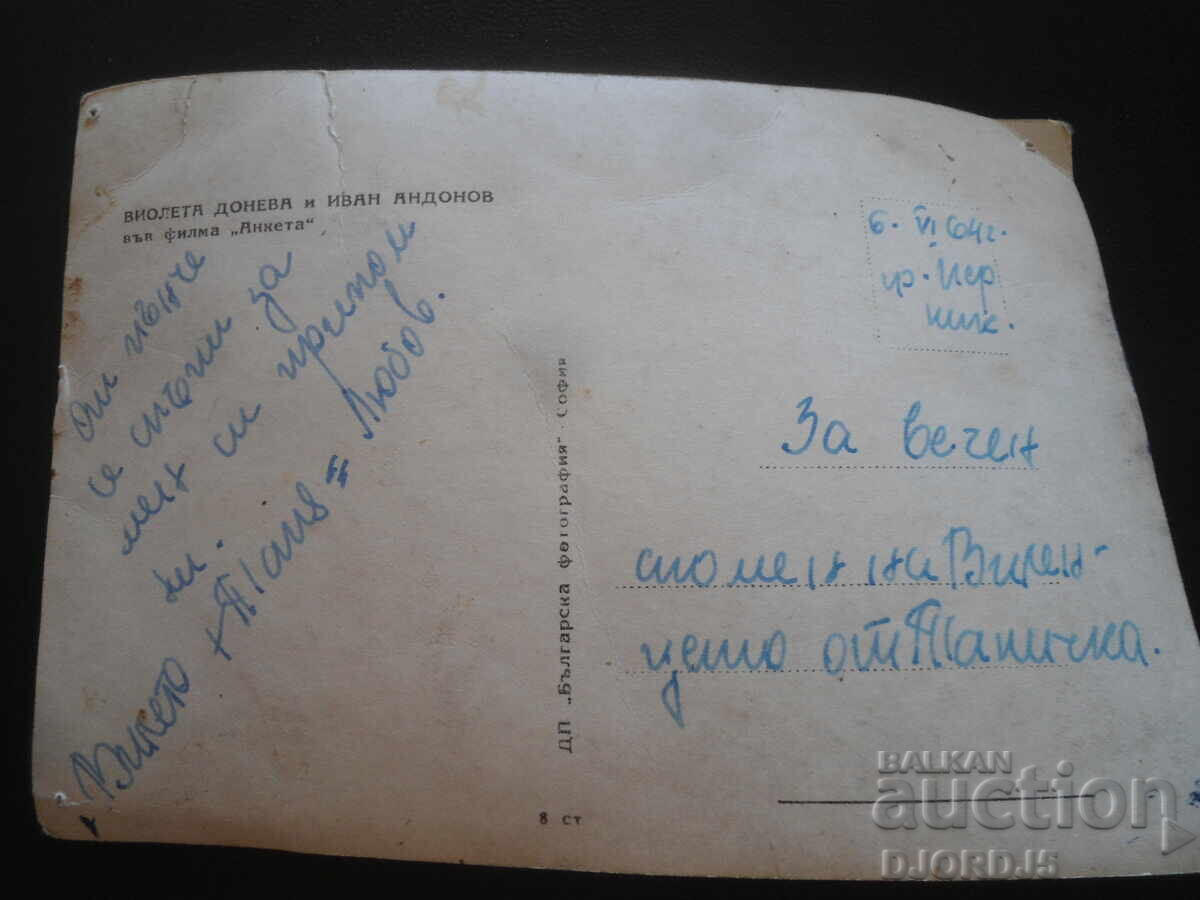 ВИОЛЕТА ДОНЕВА и ИВАН АНДОНОВ
във филма „Анкета“
ми пънче
се спъни за
мен си припом
ни.
"Винето + Таня = Любов."
ДП „Българска фотография“ · София
8 ст
6. VI 64г.
гр. Пер
ник.
За вечен
спомен на Вилен-
цето от Таничка.
BALKAN
auction
DJORDJ5